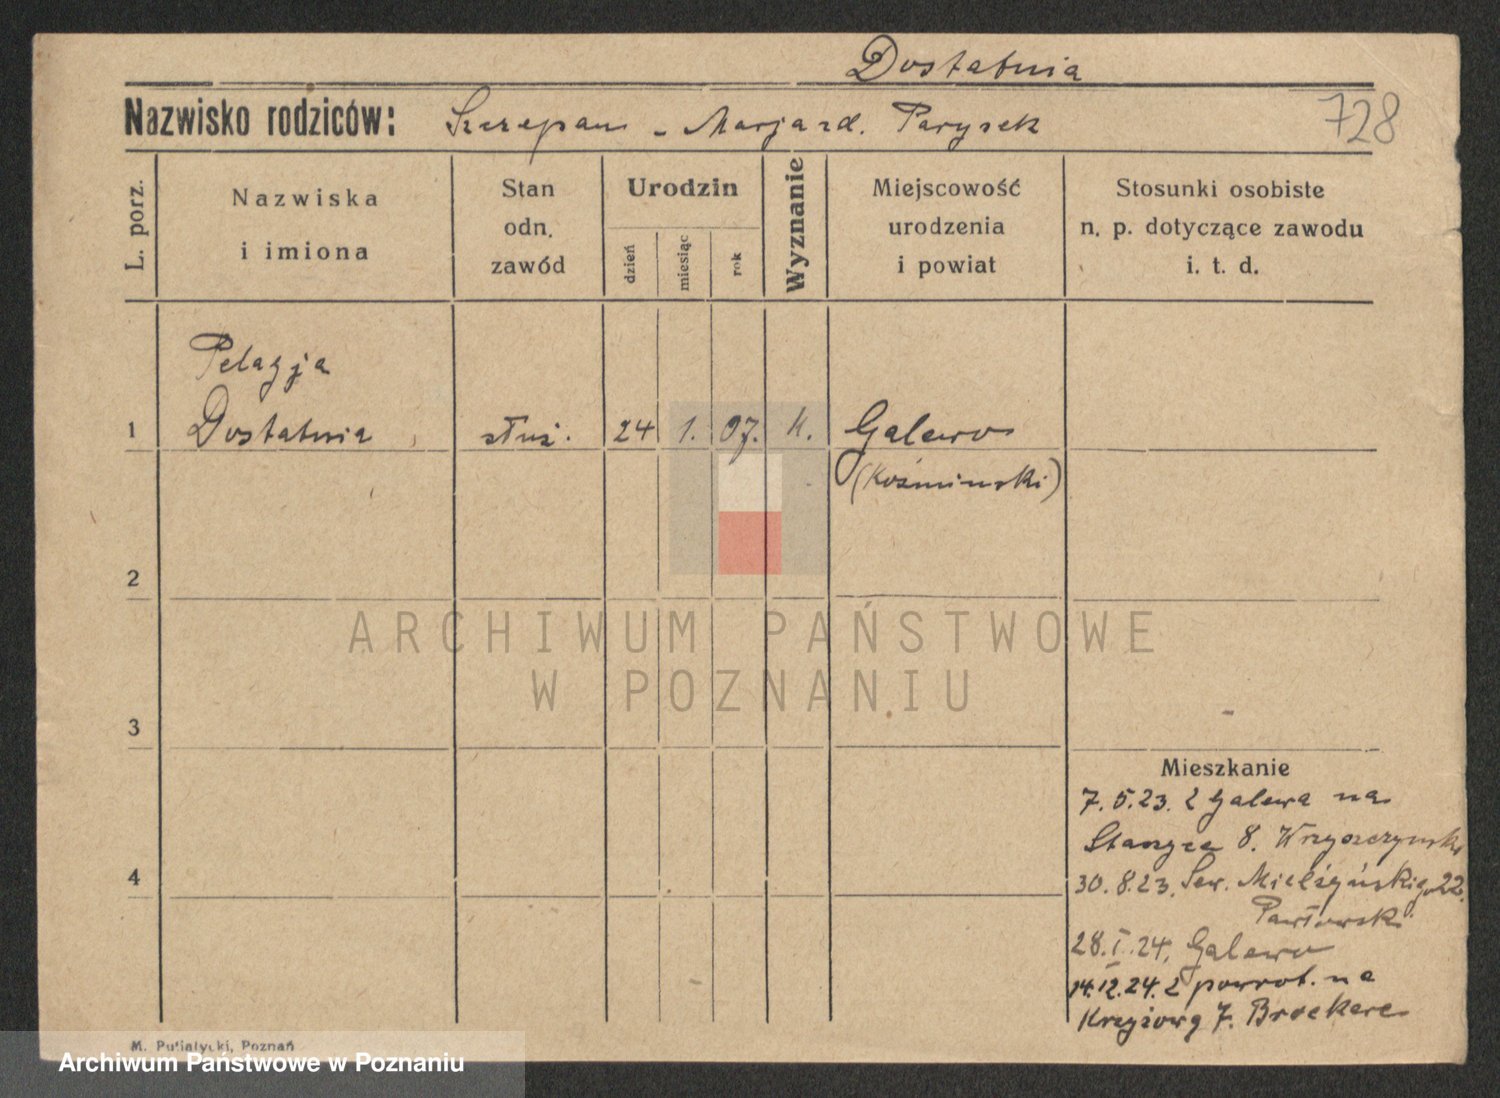 Dostatnia
Nazwisko rodziców: Szczepan - Marja zd. Parysek
728
L. porz.
Nazwiska
i imiona
Stan
odn.
zawód
Urodzin
dzień
miesiąc
rok
Wyznanie
Miejscowość
urodzenia
i powiat
Stosunki osobiste
n. p. dotyczące zawodu
i. t. d.
Pelagja
1 Dostatnia służ. 24 1. 07. k. Galewo
(Koźmiński)
2
ARCHIWUM PAŃSTWOWE
W POZNANIU
3
Mieszkanie
7.5.23. z Galewa na
Staszyca 8. Wrzyszczyński
4
30.8.23. Sew. Mielżyńskiego 22.
Pawłowski
28.I.24. Galewo
14.12.24. z powrot. na
Krzyżową 7. Broekere
M. Putiatycki, Poznań
Archiwum Państwowe w Poznaniu